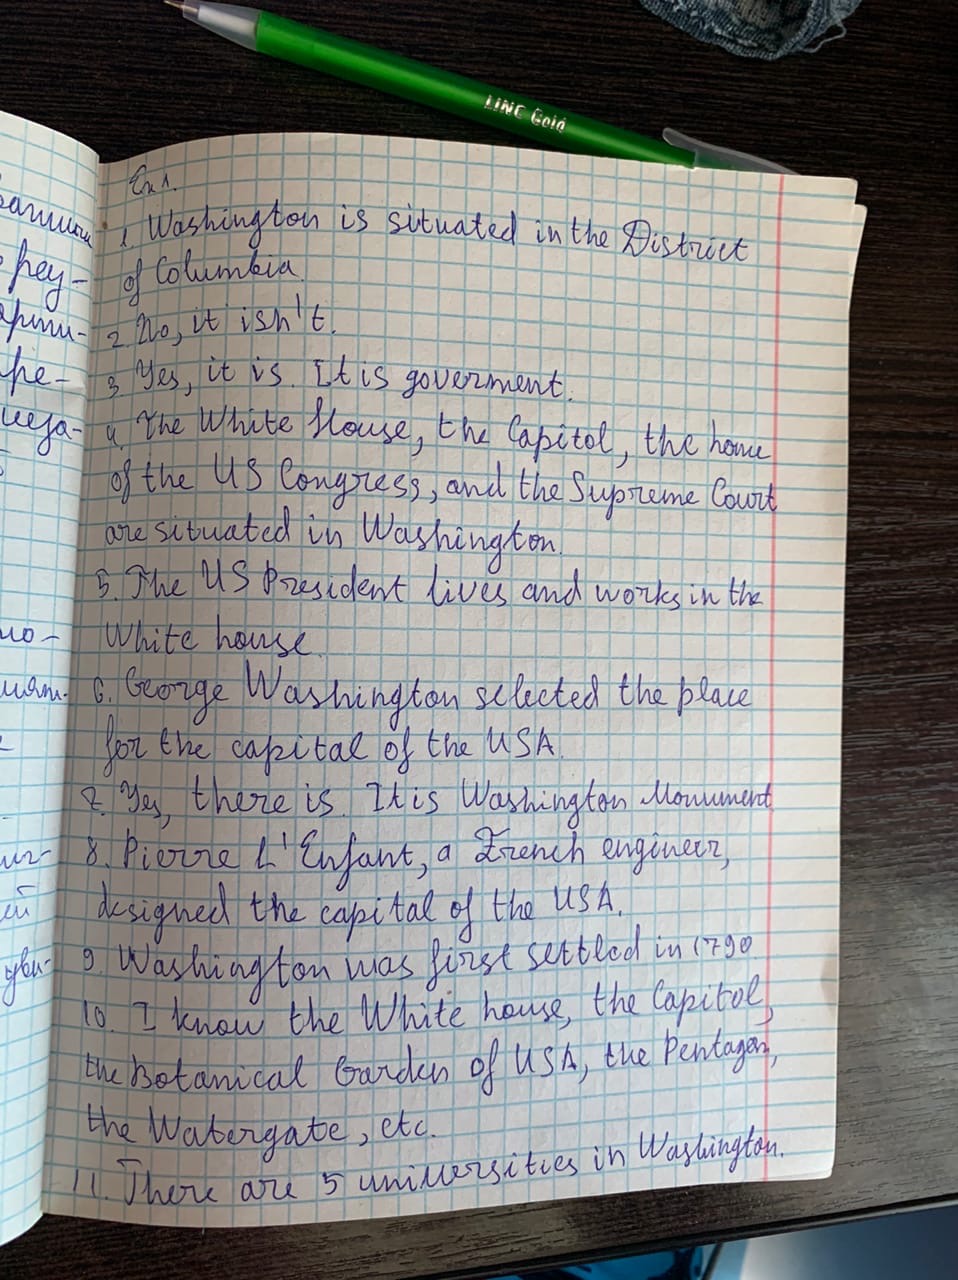 LINC Gold
Ex 1.
1. Washington is situated in the District
of Columbia.
2. No, it isn't.
3. Yes, it is. It is goverment.
4. The White House, the Capitol, the home
of the US Congress, and the Supreme Court
are situated in Washington.
5. The US President lives and works in the
White house.
6. George Washington selected the place
for the capital of the USA.
7. Yes, there is. It is Washington Monument.
8. Pierre L'Enfant, a French engineer,
designed the capital of the USA.
9. Washington was first settled in 1790
10. I know the White house, the Capitol,
the Botanical Garden of USA, the Pentagon,
the Watergate, etc.
11. There are 5 universities in Washington.